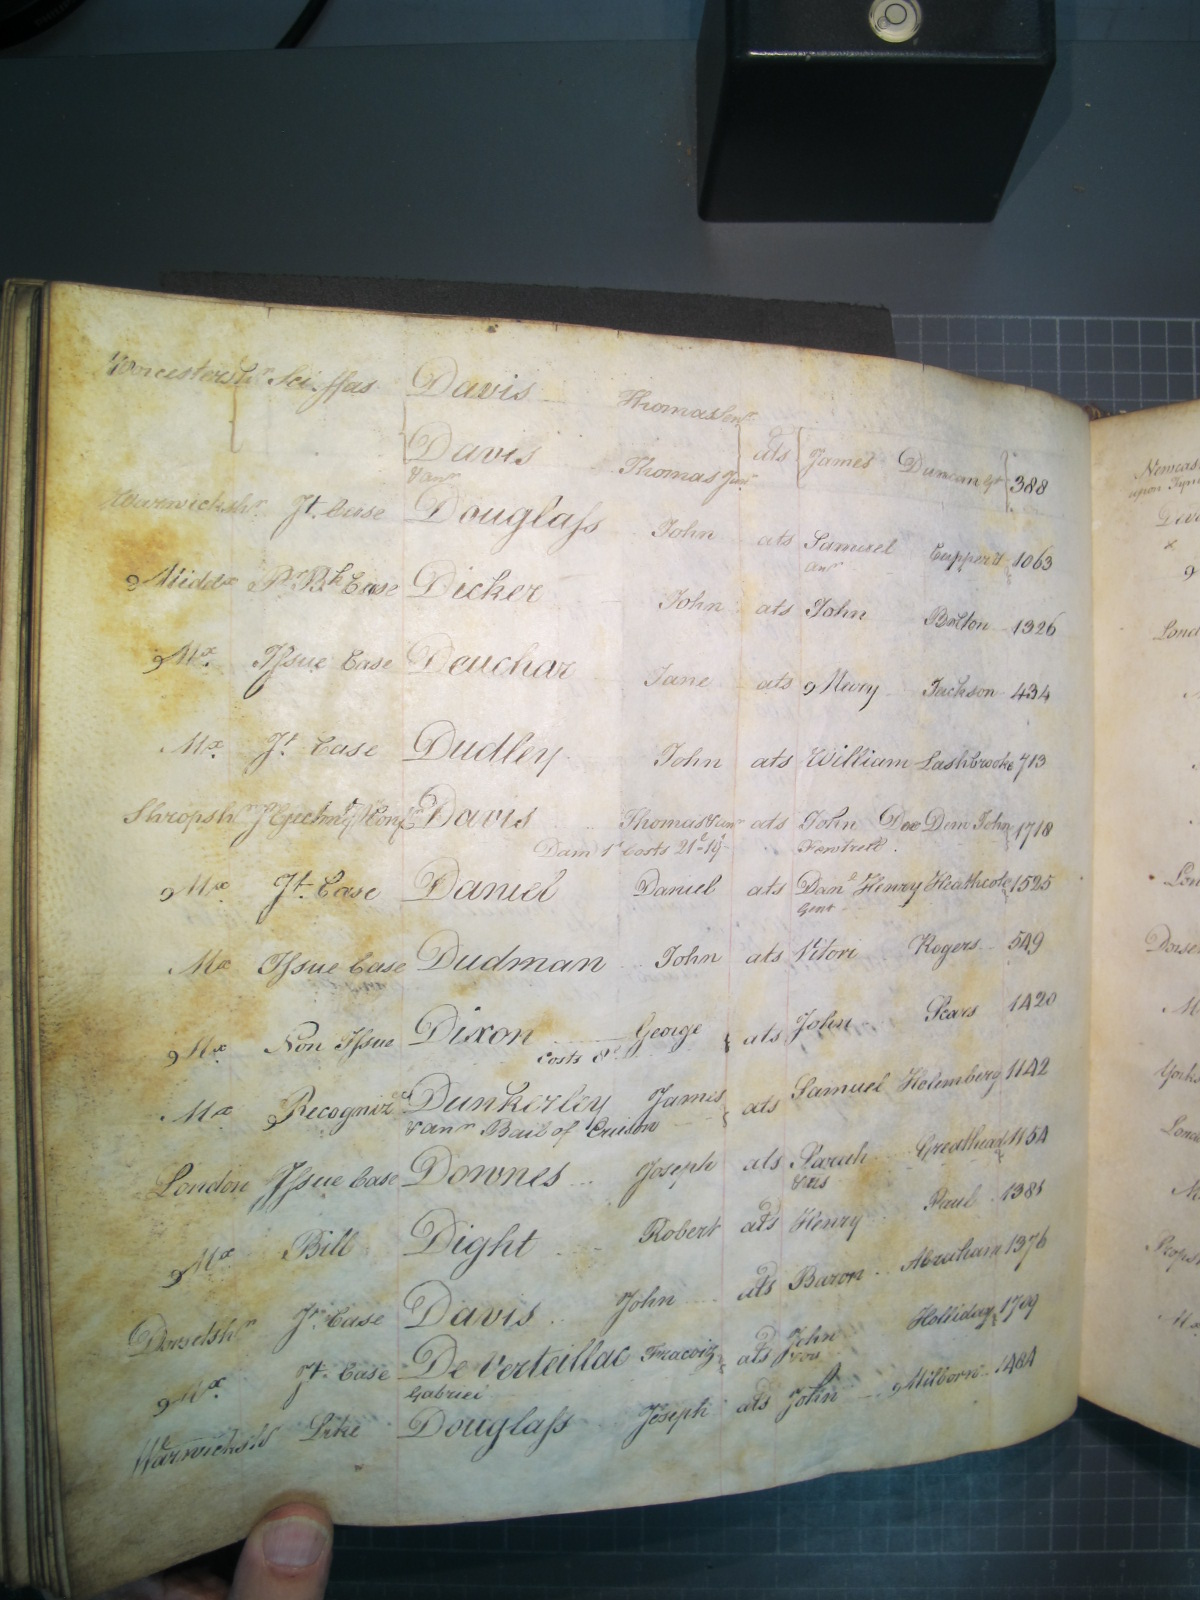 Worcestershr Sci. ffas Davis Thomas Senr
Davis Thomas Junr ats James Duncan Gt 388
& anr
Warwickshr Jt. Case Douglass John ats Samuel Cuppers 1063
& anr
Middx Case Dicker John ats John Bolton 1326
Mx. Issue Case Deuchar Jane ats Mercy Jackson 434
Mx. Jt Case Dudley John ats William Lashbrooke 713
Shropshr Davis Thomas & anr ats John Doe Dem John 1718
Dam 1s Costs
Mx Jt. Case Daniel Daniel ats Danl Henry Heathcote 1525
Gent
Mx Issue Case Dudman John ats Vitori Rogers 549
Mx Non Issue Dixon George ats John Sears 1420
Costs
Mx Recogniz Dunkerley James ats Samuel Holemberg 1142
& anr Bail of
London Issue Case Downes Joseph ats Sarah Greathead 1154
Mx Bill Dight Robert ats Henry Paul 1381
Dorsetshr Jt. Case Davis John ats Baron Abraham 1376
Mx. Jt. Case De Verteillac ats John Holliday 1709
Gabriel
Warwicksh Like Douglass Joseph ats John Milborn 1484
Newcas
upon Tyn
x
Lond
Lon
Dorse
M
Yorks
Lond
Shrops